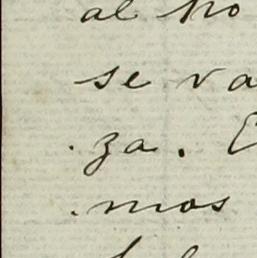 al no
se va
za. E
mos